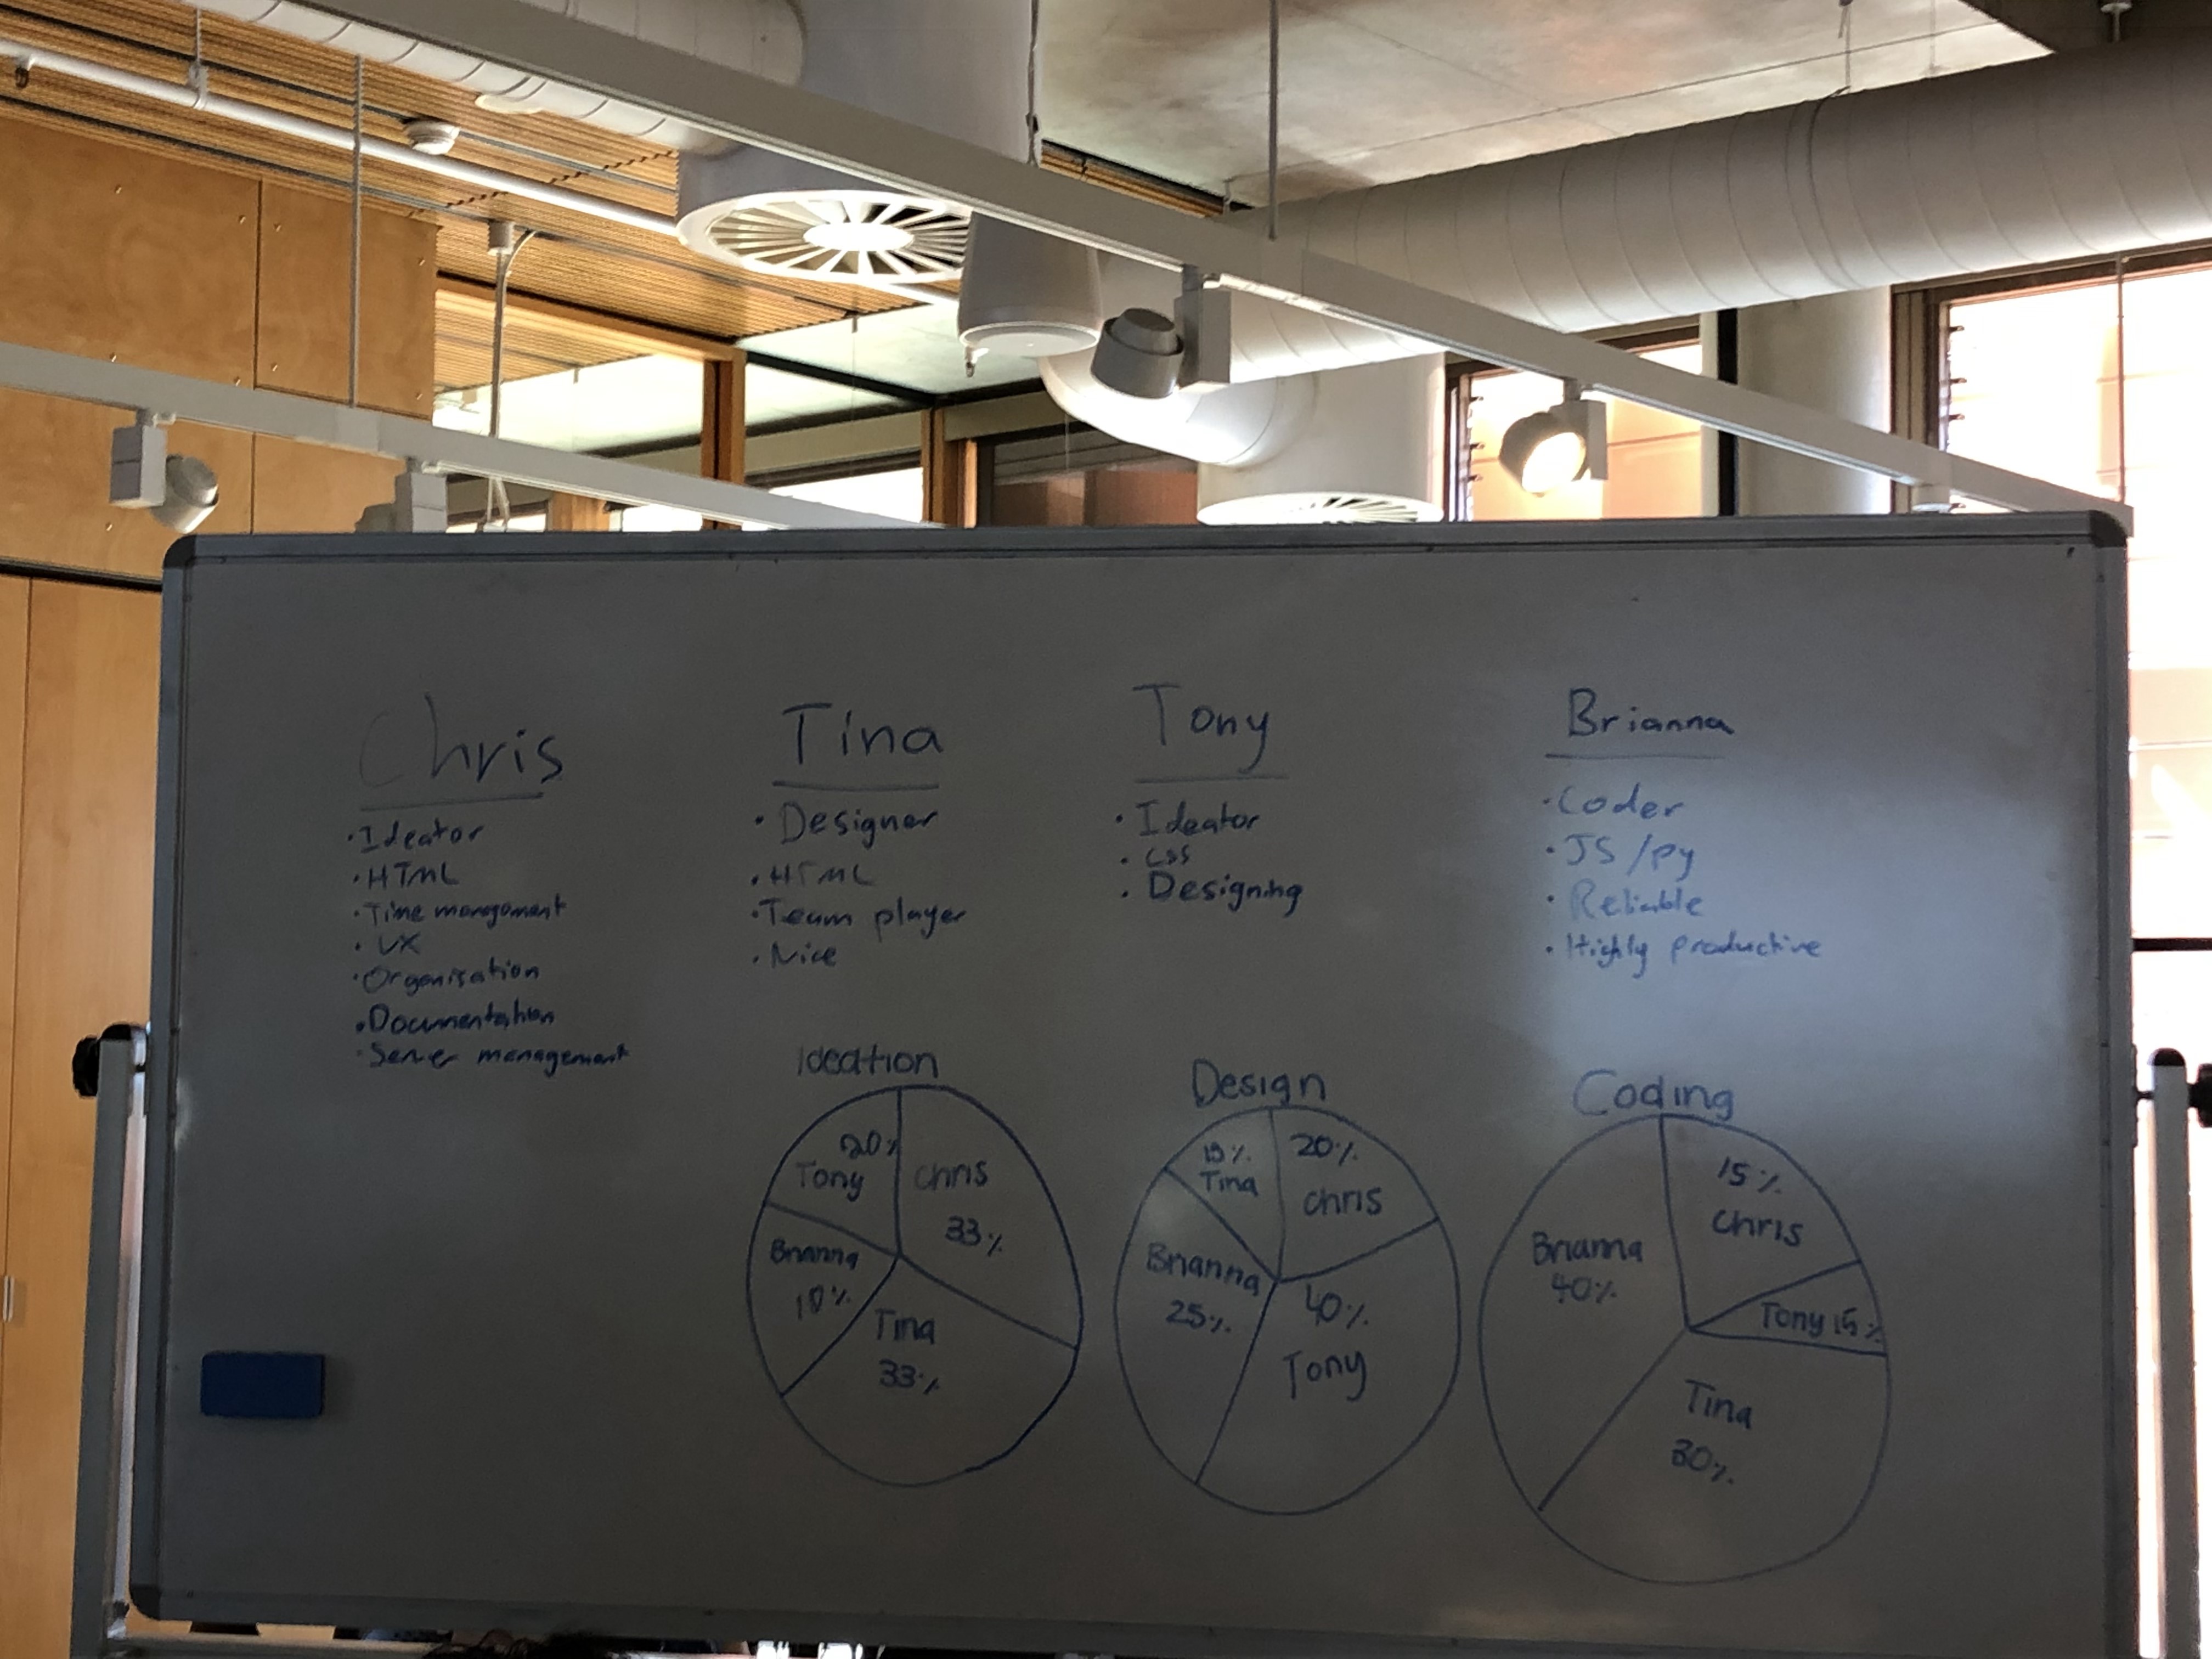 Chris
• Ideator
• HTML
• Time management
• UX
• Organisation
• Documentation
• Server management
Tina
• Designer
• HTML
• Team player
• Nice
Tony
• Ideator
• CSS
• Designing
Brianna
• Coder
• JS/py
• Reliable
• Highly productive
Ideation
20%
Tony
Chris
33%
Brianna
Tina
33%
Design
15%
Tina
20%
Chris
Brianna
25%
40%
Tony
Coding
15%
Chris
Brianna
40%
Tony 15%
Tina
30%